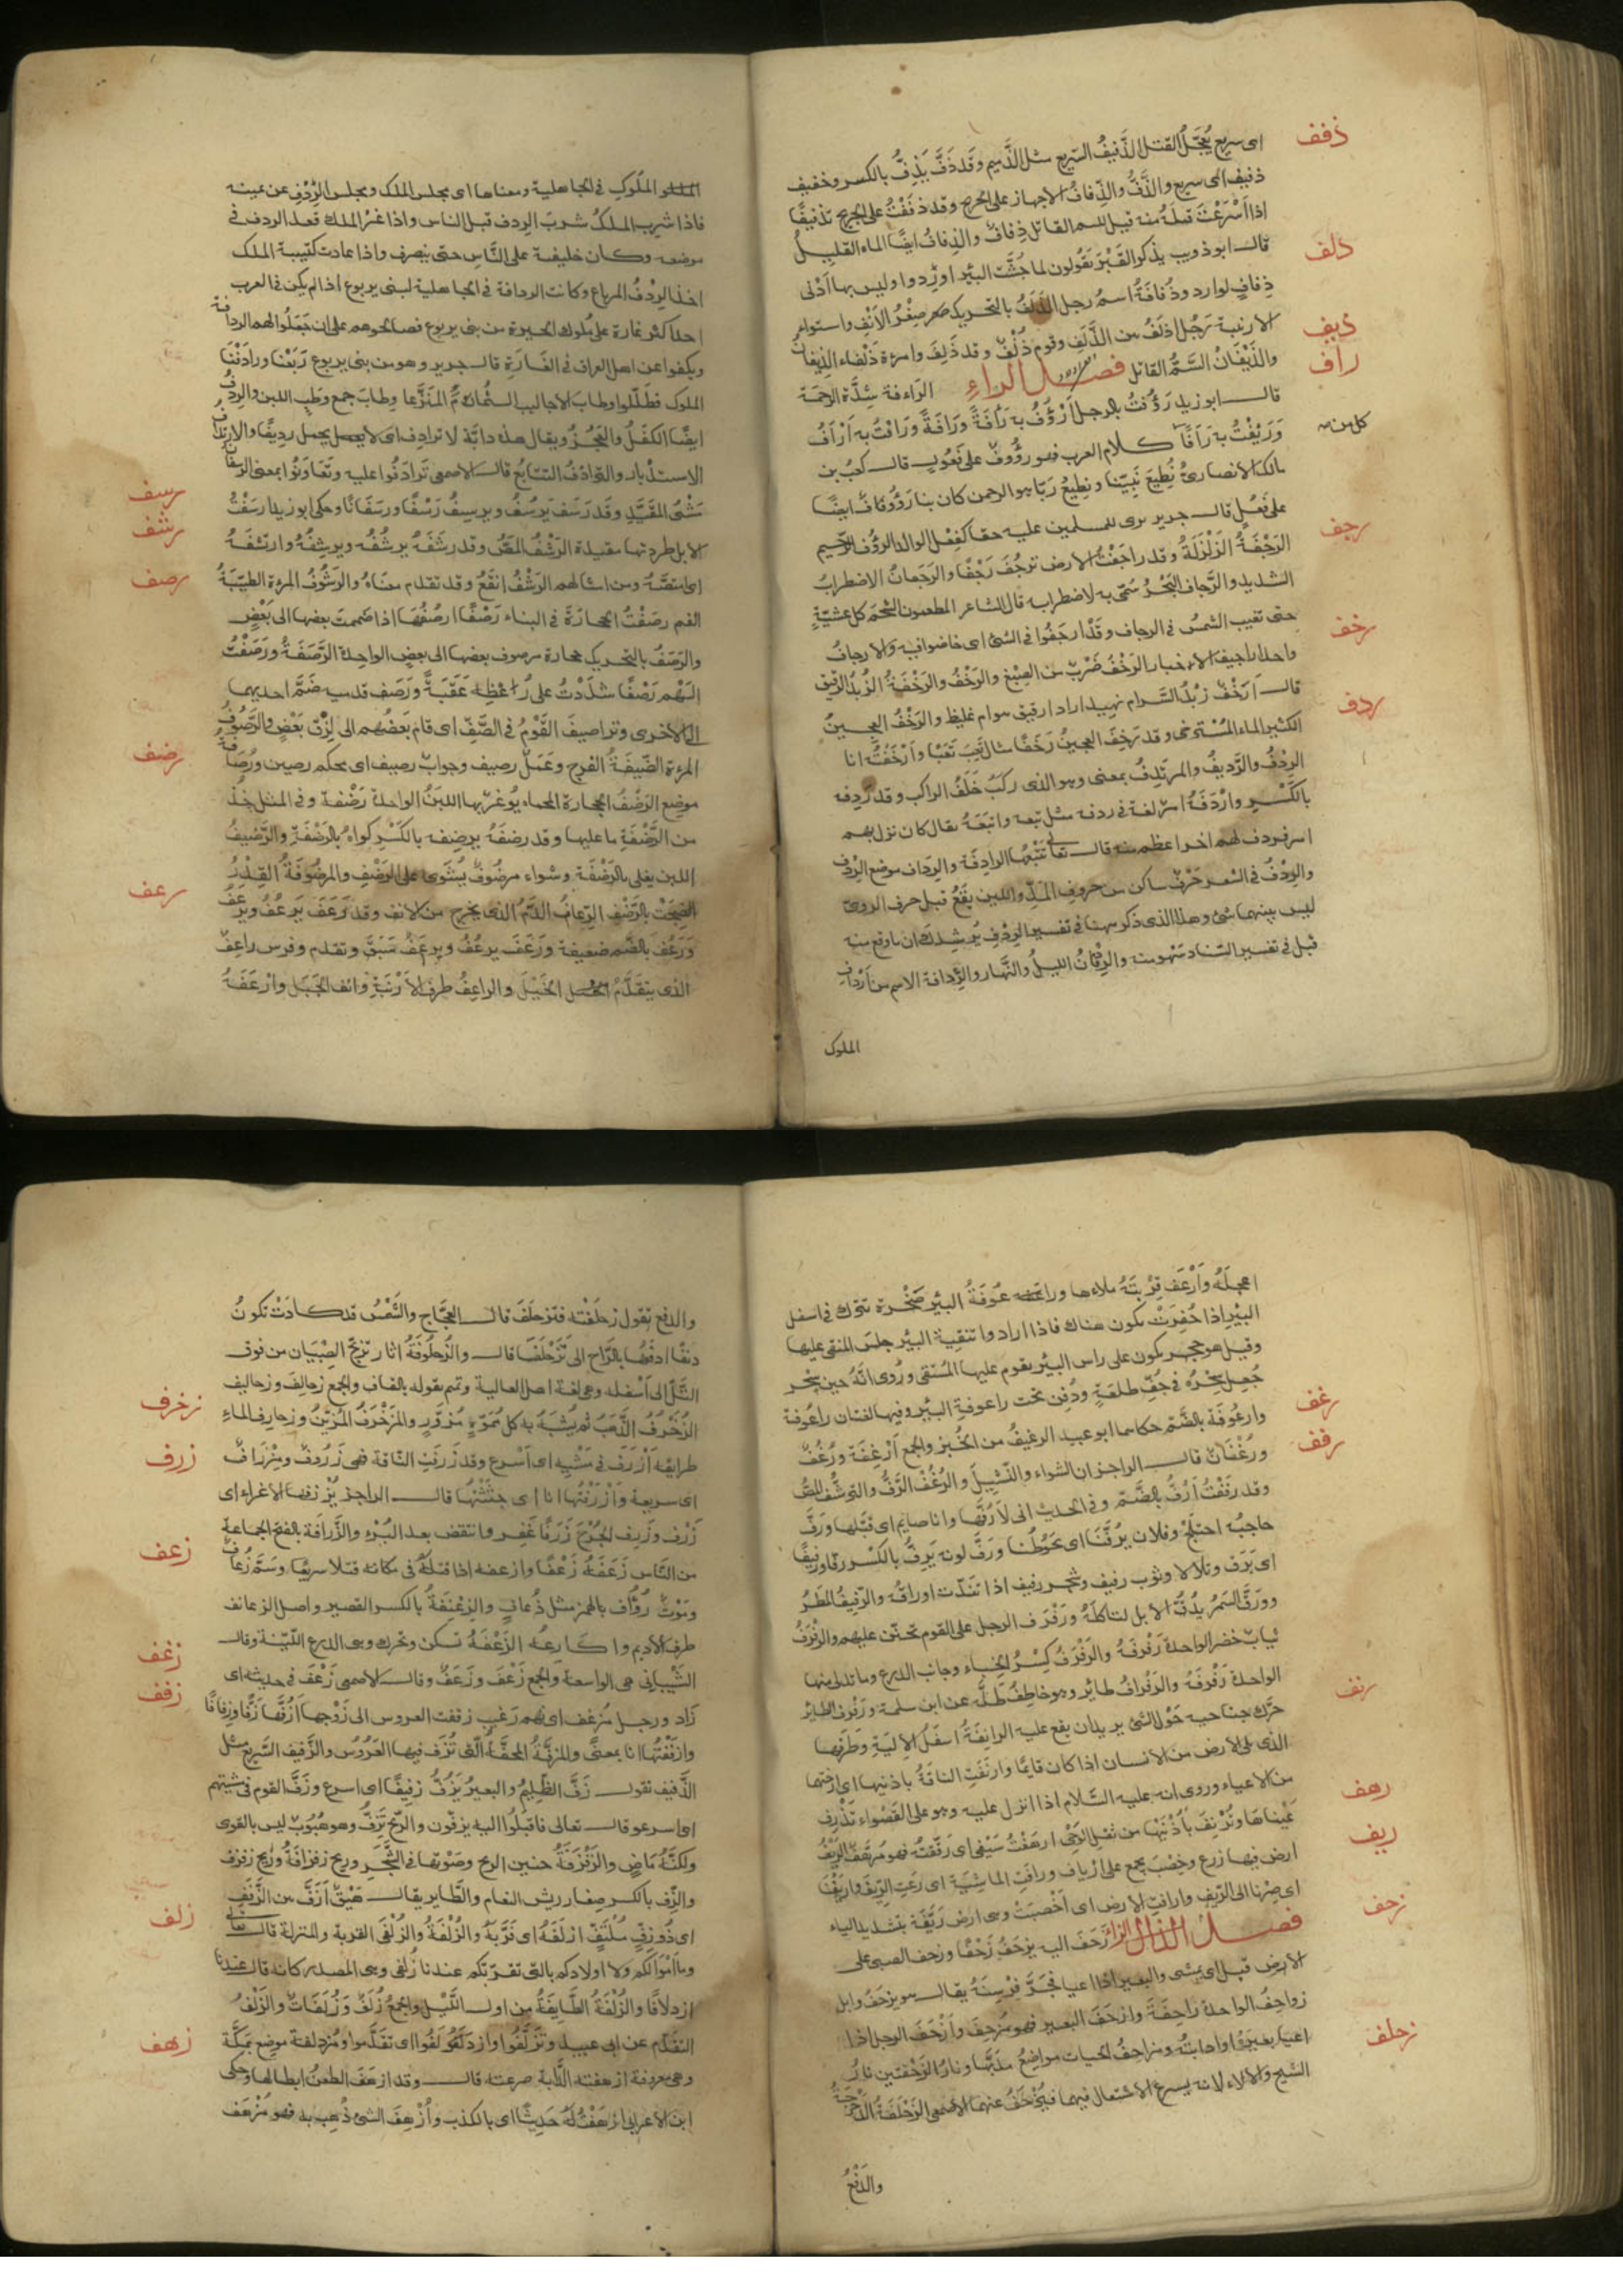 ذفف
اى سريع يُعَجِّلُ القتل الذَّفيفُ السّريع مثل الذَّميم وقَد ذَفَّ يَذِفُّ بالكسر وخفيف
ذفيف اى سريع والذَّفُّ والذِّفافُ الاجهاز على الجريح وقد ذفَفْتُ على الجريح تذفيفًا
اذا اَسْرَعْتَ قتلَهُ ومنه قيل للسم القاتل ذِفافٌ والذِفافُ ايضًا الماء القليلُ
دلف
قال ابو ذويب يذكر القَبْرَ يقولون لما جُشَّت البئر اورِدوا وليس بها اَدْنى
ذِفافٍ لوارد وذُفافَةُ اسمُ رجل الذَلَفُ بالتحريك صِغْرُ الاَنْف واستواء
ذيف
الارنبة رَجُل اذلَفُ بين الذَّلَفِ وقوم ذُلْفٌ وقد ذَلِفَ وامرءة ذَلْفاء الذِيفانُ
راف
والذَّيْفَانُ السَّمُّ القاتل فصل الراء الراءفة شِدَّة الرحمة
قال ابو زيد رَؤُفتُ بالرجل اَرْؤُفُ به رَأفَةً ورَافَةً ورَافْتُ به اَرْاَفُ
كل من
وَرَئِفْتُ به رَاَفًا كلام العرب فهو رؤُوفٌ على فَعُولٍ قال كعبُ بن
مالك الانصارىُّ نُطِيعُ نَبِيّنا ونطيعُ ربًا هو الرحمن كان بنا رَؤُوفًا ورَأُفٌ ايضًا
على فَعُلٍ قال جرير يرى للمسلمين عليه حقا كفِعْل الوالد الرؤُف الرحيم
رجف
الرَجْفَةُ الزَلْزَلَةُ وقد رجَفَتْ الارض ترجُفُ رَجْفًا والرَجَفانُ الاضطرابُ
الشديد والرَّجاف البَحْرُ سُمِّى به لاضطرابه قال الشاعر المطعمون الشحمَ كل عشيّةٍ
حتى تغيب الشمسُ فى الرجاف وقَدْ ارجَفُوا فى الشئ اى خاضوا فيه والارجافُ
رخف
واحد اراجيف الاخبار الرَخْفُ ضَرْبٌ من الصِبْغ والرَخْفُ والرَخْفَةُ الزُبدُ الرقيق
قال اَرَخْفٌ زُبْدُ ايسَرام نهيد اراد ارقيق هو ام غليظ والرَخْفُ العجينُ
ردف
الكثير الماء المُسْترخى وقد رَخِفَ العجينُ رَخَفًا مثال تَعِبَ تَعَبًا واَرْخَفْتُه انا
الرِدْفُ والرَّديفُ والمرتَدِفُ بمعنى وهو الذى ركبَ خَلْفَ الراكب وقد رَدِفه
بالكَسْرِ واَرْدَفَهُ امر لغة فى ردفه مثل تبعه واتبَعَهُ يقال كان نزل بهم
امر فردف لهم اخر اعظم منه قال تعالى تَتْبَعُها الرادِفَة والرِدافُ موضع الرِدْفِ
والرِدْفُ فى الشعر حَرْفٌ ساكن من حروف المدّ واللين يقَعُ قبل حرف الروىّ
ليس بينهما شئ وهذا الذى ذكر ههنا فى تفسير الرِدْفِ يُرشدك ان ما وقع منه
قبل فى تفسير السّناد سَهْو منه والرِدْفانُ الليلُ والنَّهار والرِّدافة الاسم من اَرْداف
الملوك
الملوكِ فى الجاهلية ومعناها اى يجلس الملك ويجلس الرِدْفِ عن يمينه
فاذا شرِبَ الملكُ شربَ الرِدف قبل الناس واذا غزا الملك قعد الردف فى
موضعه وكان خليفته على النَّاسِ حتى ينصرف واذا عادت كتيبة الملك
اخذ الرِدْفُ المرباع وكانت الردافة فى الجاهلية لبنى يربوع اذا لم يكن فى العرب
احد اكثر غارة على ملوك الحيرة من بنى يربوع فصالحوهم على ان جَعَلُوا لهم الردافة
ويكفوا عن اهل العراق فى الغَارَةِ قال جرير وهو من بنى يربوع رَبَعْنا ورادَفْنا
الملوك فظلّلوا وطابَ الاحاليب الثُمامَ المُنَزَّعا وطابَ جمع وطْبِ اللبن والرِدْفُ
ايضًا الكَفَلُ والعَجُزُ ويقال هذه دابّة لا ترادِف اى لا تحمل رديفًا والارتدافُ
الاستدْبار والتوادُفُ التتابُع قال الاصمعى تَرادَفُوا عليه وتَعَاوَنُوا بمعنى الرَسَفانُ
رسف
مَشْىُ المُقَيَّدِ وقَد رَسَفَ يَرْسُفُ ويرسِفُ رَسْفًا ورسَفَانًا وحكى ابو زيد ارسَفْتُ
رشف
الابل طردتها مقيدة الرَشْفُ المَصُّ وقد رشَفَهُ يرشُفُه ويرشِفُهُ وارتشَفَهُ
رصف
اى امتصَّهُ ومن امثالهم الرَشْفُ انقَعُ وقد تقدم معناهُ والرَشُوفُ المرءة الطيّبَةُ
الفم رصَفْتُ الحجارَةَ فى البناء رَصْفًا ارصُفُها اذا ضممتَ بعضها الى بَعْضٍ
والرَصَفُ بالتحريك حجارة مرصوف بعضها الى بعض الواحدة الرَّصَفَةُ ورَصَفْتُ
السَهْم رَصْفًا شدَدْتُ على رُعْظِه عَقَبَةً ورَصَف قدميه ضَمَّ احديهما
الى الاخرى وتراصفَ القَوْمُ فى الصَّفّ اى قام بَعْضُهم الى لِزْق بَعْضٍ والرَصُوفُ
رضف
المرءة الضَيّقَةُ الفرج وعَمَلٌ رصيف وجوابٌ رصيف اى محكم رصين ورُصَافة
موضع الرَضْفُ الحجارة المحماة يُوغَرُ بها اللبَنُ الواحدة رَضْفة وفى المثل خذْ
من الرَّضْفَةِ ما عليها وقد رضفَهُ يرضِفه بالكَسْرِ كواهُ بالرَضْفَةِ والرَّضيفُ
رعف
اللبن يغلى بالرَضْفَة وشواء مرضُوفٌ يُشْوَى على الرَضْفِ والمرضُوفَةُ القِدْرُ
انضِجَتْ بالرَضْفِ الرُعافُ الدَمُ الذى يخرج من الانف وقد رَعَفَ يَرعُفُ ويَرعَفُ
وَرَعُفَ بالضم ضعيفة ورَعَفَ يرعُفُ ويرعَفُ سَبَقَ وتقدم وفرس راعِفٌ
الذى يتقدَّمُ الخَيْلَ والراعِفُ طرف الاَرْنَبَةِ وانف الجَبَل وازْعَفَهُ
اعجلَهُ واَرْعَف قِرْبتَهُ ملاءها وراعُوفَةُ البئرِ صَخْرة تترك فى اسفل
البئر اذا حُفِرَتْ تكون هناك فاذا ارادوا تنقية البئر جلسَ المنقى عليها
وقيل هو حجر يكون على راس البئر يقوم عليها المُسْتقى ورُوى انّهُ حين سُحِر
جُعِل سِحْرُه فى جُفِّ طلعَةٍ ودُفِن تحت راعوفةِ البئر وفيها لغتان راعُوفة
رغف
وارعُوفَة بالضَّم حكاها ابو عبيد الرغيفُ من الخُبز والجمع اَرْغِفَة ورُغُفٌ
رفف
ورُغْفَانٌ قال الراجز ان الشواء والنّشِيلَ والرُغُفْ الرَّفُّ والترشُّف المصُّ
وقد رَفَفْتُ اَرُفُّ بالضَّم وفى الحديث انى لاَرُفُّها وانا صايم اى قبّلها ورَفَّ
حاجبُه اختلَجَ وفلان يرُفّنَا اى يحَوُطُنا ورَفَّ لونه يَرِفُّ بالكسْر رفّا ورفيفًا
اى بَرَق وتلالا وثوب رفيف وشجر رفيف اذا تندّت اوراقه والرَفيفُ
ثيابٌ خضر الواحدة رَفْرفةُ والرَفْرَفُ كِسْرُ الخباء وجانب الدرع وما تدلى منها
الواحدة رَفْرفَةُ والرَفْرافُ طائر وهو خاطِفُ ظِلِّه عن ابن سلمة ورَفْرَف الطائر
رنف
حرَّك جناحيه حَوْل الشئ يريد ان يقع عليه الرانِفَةُ اَسفَلُ الاِليَةِ وطَرفُها
الذى يلى الارض من الانسان اذا كان قايمًا وارنَفَتِ الناقةُ باذنيها اى ارختها
من الاعياء وروى انه عليه السَّلام اذا انزل عليه وهو على القَصْواء تَذْرِف
رهف
عَيْناها وتُرْنِفُ بأذُنَيْها من ثقل الوَحْى ارهَفْتُ سَيْفى اى رَقّقتُه فهو مُرْهَفٌ الرِيفُ
ريف
ارض فيها زرع وخِصْب يجمع على اَرياف ورافَتِ الماشِيَة اى رَعَتِ الرِيفَ واريَفْنَا
اى صِرْنا الى الرّيف وارافت الارض اى اَخْصبَتْ وهى ارض رَيّفَة بتشديد الياء
زحف
فصل الزاء زَحَفَ اليه يزحَفُ زَحْفًا وزحف الصبى على
الارض قبل اى يمشى والبعير اذا اعيا فجَرَّ فِرْسِنَهُ يقال هو يزحَفُ وابل
زواحِفُ الواحدة زاحِفَةَ وازحَفَ البعير فهو مُزحِفٌ واَزْحَفَ الرجل اذا
زحلف
اعيا بعيرُهُ او دابتُهُ ومزاحِفُ الحيات مواضعُ مدَبِّها ونارُ الزَحْفتين نارُ
الشيح والالاء لانه يسرع الاشتعال فيهما فيُزحَفُ عنهما الاصمعى الزَحْلَفَةُ الدَّحْرَجَةُ
والدَفْعُ
والدفع تقول زحلَفْته فتزحلَفَ قال العجّاج والشمْسُ قد كادَتْ تكونُ
دنفًا ادفعُها بالرّاح اَلى تَزَحْلَفَا قال والزُحلُوفَةُ اثار تزلّج الصِبْيَان من فوق
زخرف
التَّلّ الى اَسْفله وهى لغة اهل العالية وتميم يقوله بالقاف والجمع زحالِفُ وزحاليف
الزُخْرُفُ الذّهَبُ ثم يُشبَّهُ به كل مُمَوَّهٍ مُزوّرٍ والمزَخْرَفُ المُزيَّنُ وزخارِف الماءِ
زرف
طرايقه اَزْرَفَ فى مَشْيِه اى اَسْرع وقد زَرَفَتِ النّاقة فهى زَرُوفٌ ومِزْرَافٌ
اى سريعة واَزْرَفْتُها انا اى حَثَثْتُها قال الراجز يُزْرِفها الاغراء اى
زَرْف وزَرِف الجُرْحُ زَرَفًا غَفِر وانتقض بعد البُرْءِ والزَّرافة بالفتح الجماعة
زعف
من النّاس زَعَفَهُ زَعْفًا وازعفه اذا قتلَهُ فى مكانه قتلا سريعًا وسَمٌّ زُعافٌ
ومَوْتٌ زُؤَاف بالهمز مثل ذُعافٍ والزِعْنِفَةُ بالكسر القصير واصل الزعانف
زغف
طرف الاديم واكارعُه الزَغْفَةُ تسكن وتحرك وهى الدرع اللّيّنة وقال
الشّيْبانى هى الواسعة والجمع زَغْفٌ وزَغَفٌ وقال الاصمعى زَغَفَ فى حديثه اى
زفف
زَاد ورجل مُزغف اى نهم رَغيب زففت العروس الى زَوْجها اَزُفُّها زَفًّا وزِفافًا
وازفَفْتُها انا بمعنًى والمِزَفّةُ المِحَفّةُ الّتى تُزَف فيها العَرُوس والزَّفيف السَّريع مثل
الذَّفيف تقول زَفَّ الظَلِيمُ والبعيرُ يَزِفُّ زفيفًا اى اسرع وزَفَّ القوم فى مشيتهم
اى اسرعو قال تعالى فاقبلُوا اليه يزفّون والرّيح تَزِفُّ وهو هُبُوبٌ ليس بالقوى
ولكنَّهُ مَاضٍ والزَفْزَفَةُ حنين الريح وصَوْتها فى الشَّجَرِ وريح زفزافةٌ وريح زفزف
والزِّف بالكسر صِغار ريش النعام والطَّاير يقال هَيْقٌ اَزَفُّ بين الزَّفَفِ
زلف
اى ذُو زِفٍّ مُلْتَفٍّ ازلفَهُ اى قَرَّبَهُ والزُلْفَةُ والزُلْفَى القربة والمنزلة قال تعالى
وما اَمْوالكم ولا اولادكم بالتى تقرّبكم عندنا زُلفى وهى المصدر كانه قال عندنا
ازدلافًا والزُلْفَةُ الطَّايفَةُ مِن اول اللَّيْل والجمع زُلَفٌ وَزُلَفَاتٌ والزَلَفُ
زهف
التقدّم عن ابى عبيد وتَزَلَّفُوا وازدَلَفُوا اى تقدَّموا ومُزدِلفة موضع بمكَّة
وهى معرفة ازهفته الدَّابة صرعته قال وقد ازهَفَ الطعنُ ابطالها وحكى
ابن الاعرابى ازهَفْتُ لَهُ حَدِيثًا اى بالكذب واُزْهِفَ الشئ ذُهِب به فهو مُزْهَف